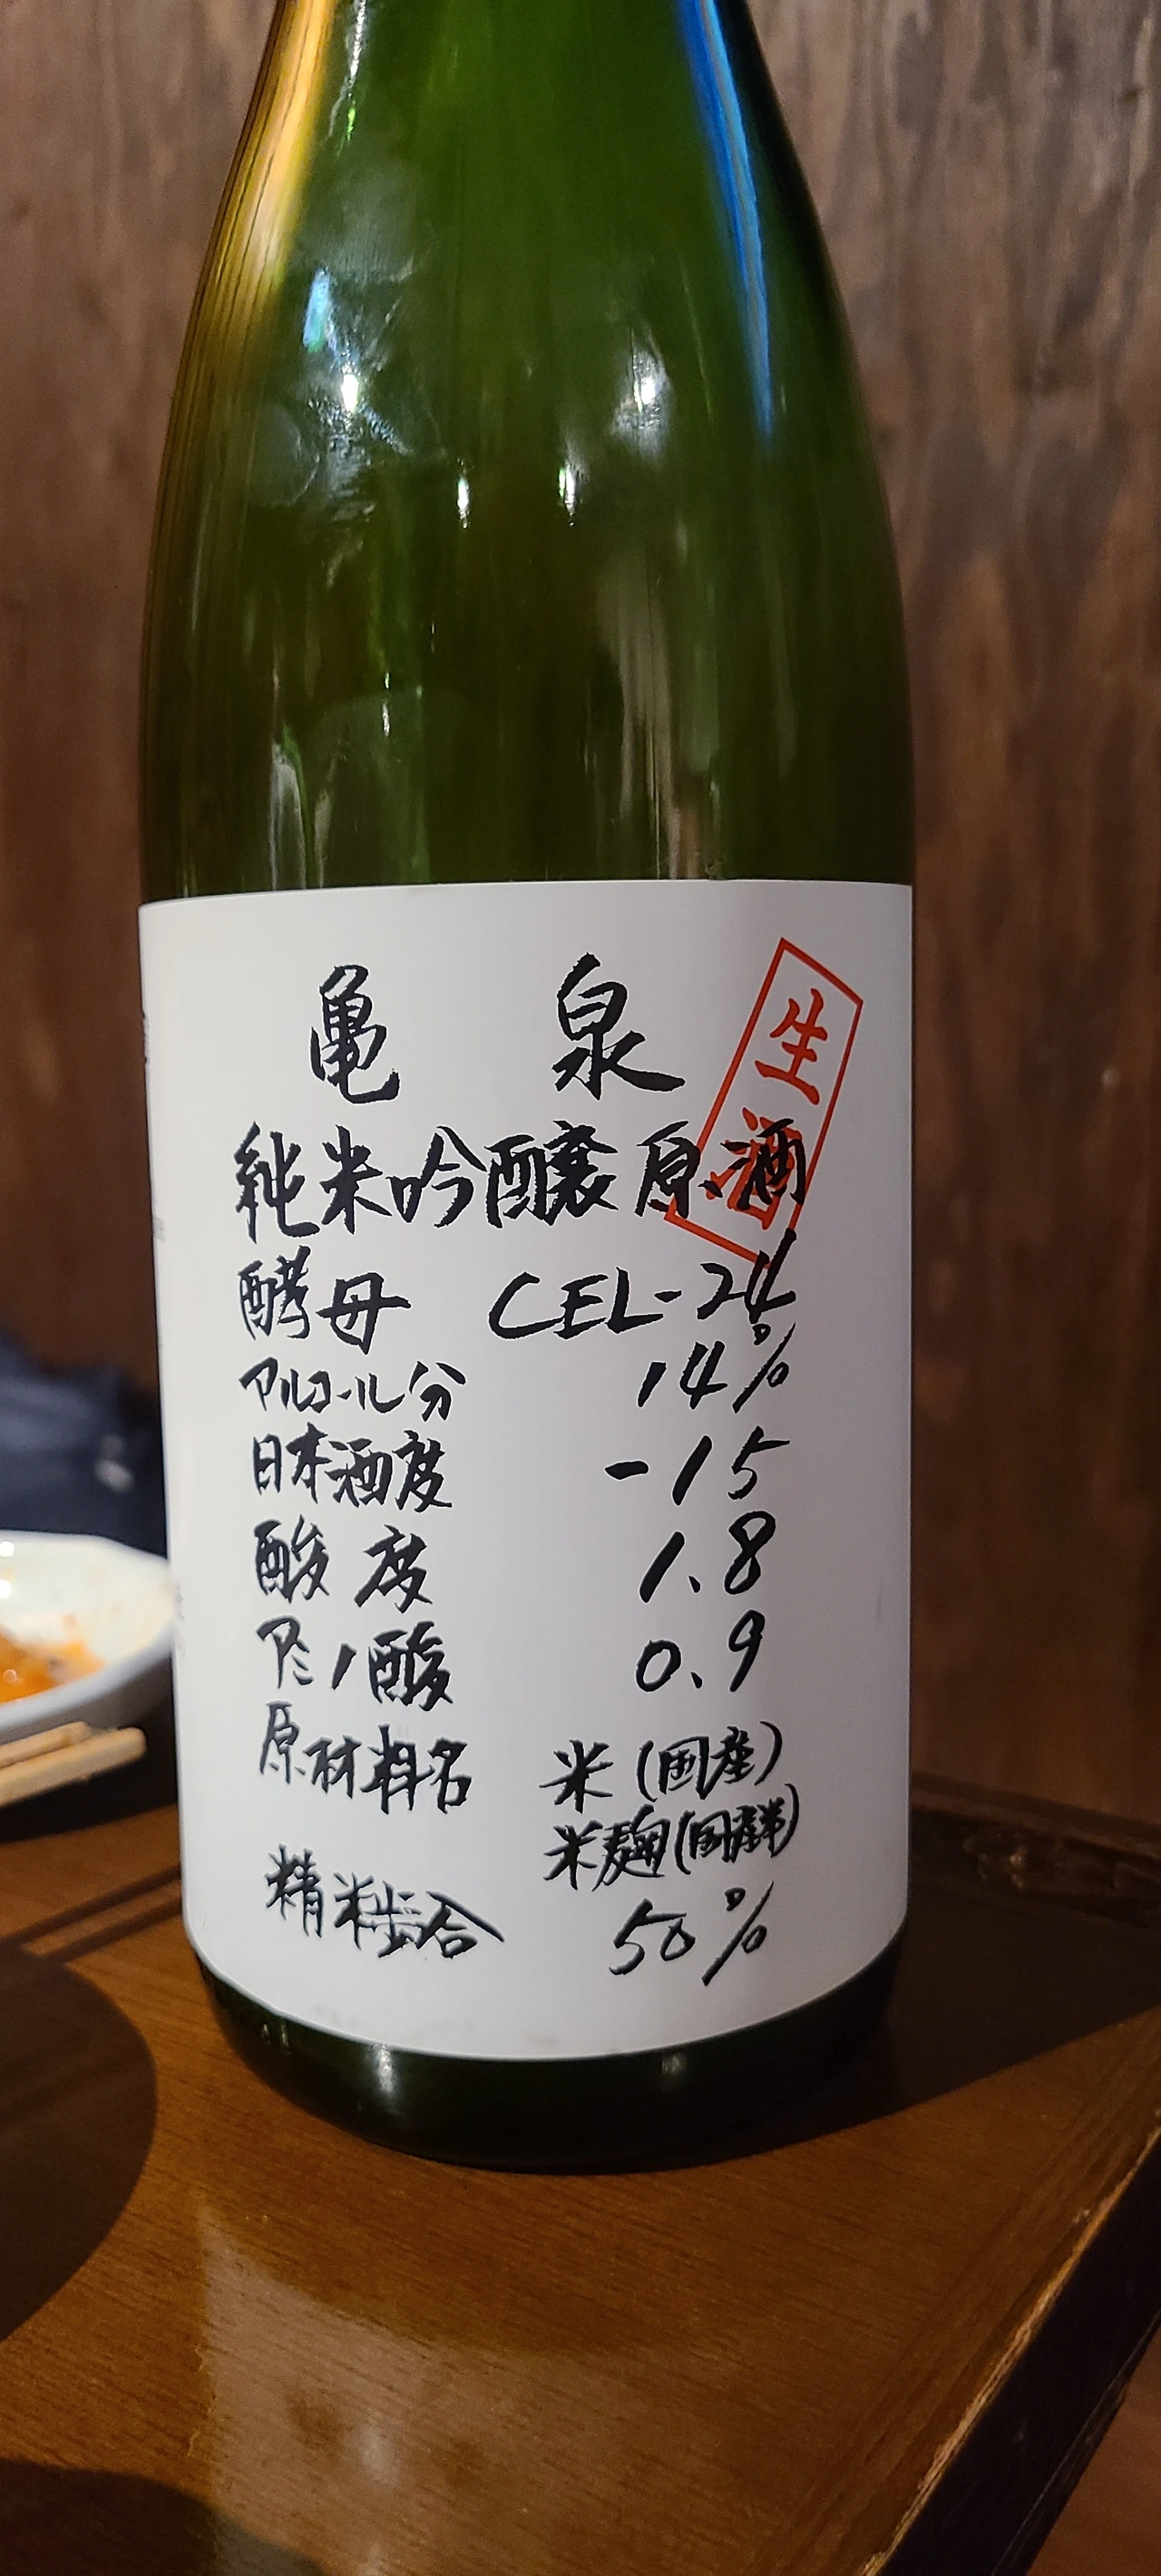 亀 泉
生酒
純米吟醸原酒
酵母 CEL-24
アルコール分 14%
日本酒度 -15
酸度 1.8
アミノ酸 0.9
原材料名 米(国産)
米麹(国産米)
精米歩合 50%